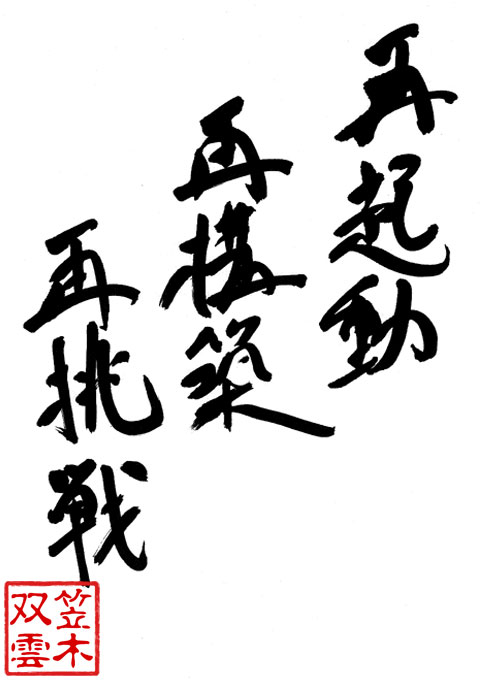 再起動
再構築
再挑戦
笠木
双雲